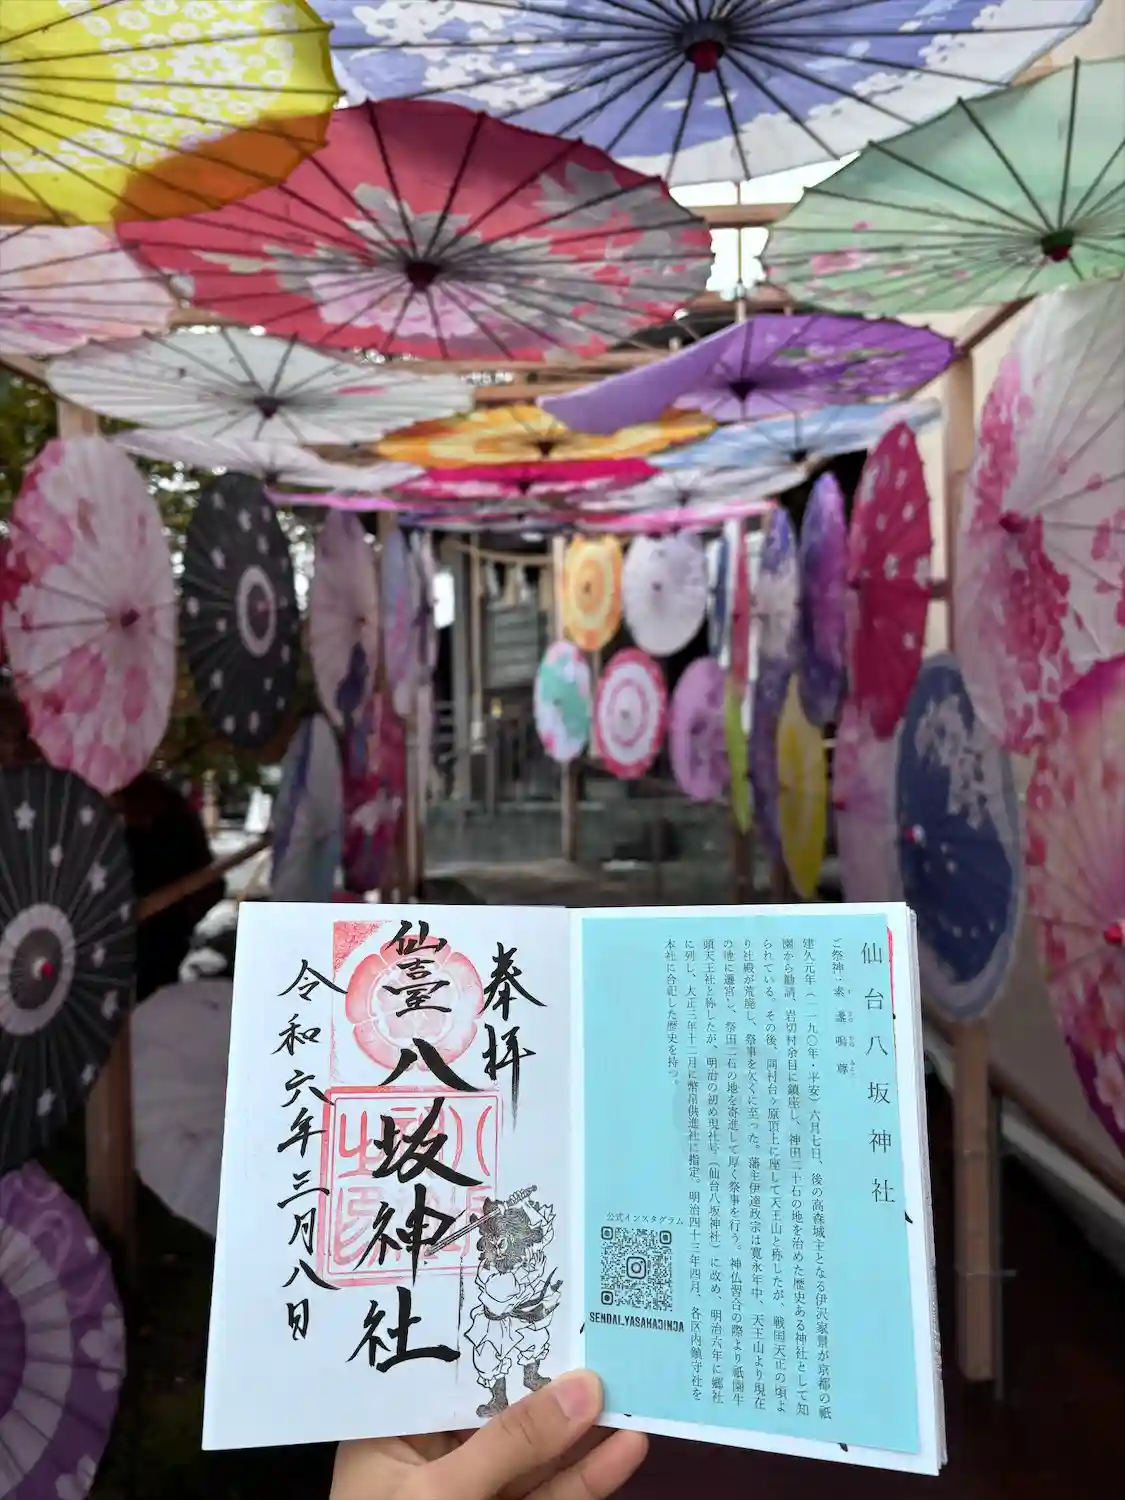 奉拝
仙臺八坂神社
令和六年三月八日
仙台八坂神社
ご祭神:素盞嗚尊
建久元年(一一九〇年・平安)六月七日、後の高森城主となる伊沢家景が京都の祇
園から勧請、岩切村余目に鎮座し、神田二十石の地を治めた歴史ある神社として知
られている。その後、同村台ヶ原頂上に座して天王山と称したが、戦国天正の頃よ
り社殿が荒廃し、祭事を欠くに至った。藩主伊達政宗は寛永年中、天王山より現在
の地に遷宮し、祭田二石の地を寄進して厚く祭事を行う。神仏習合の際より祇園牛
頭天王社と称したが、明治の初め現社号(仙台八坂神社)に改め、明治六年に郷社
に列し、大正三年十二月に幣帛供進社に指定。明治四十三年四月、各区内鎮守社を
本社に合祀した歴史を持つ。
公式インスタグラム
SENDAI_YASAKAJINJA